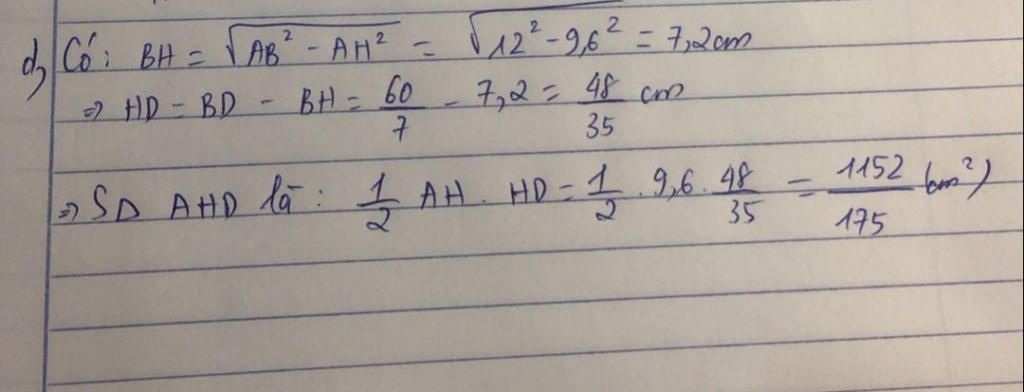 d, Có: BH = √(AB² - AH²) = √(12² - 9,6²) = 7,2cm
⇒ HD = BD - BH = 60/7 - 7,2 = 48/35 cm
⇒ SΔ AHD là: 1/2 AH . HD = 1/2 . 9,6 . 48/35 = 1152/175 (cm²)